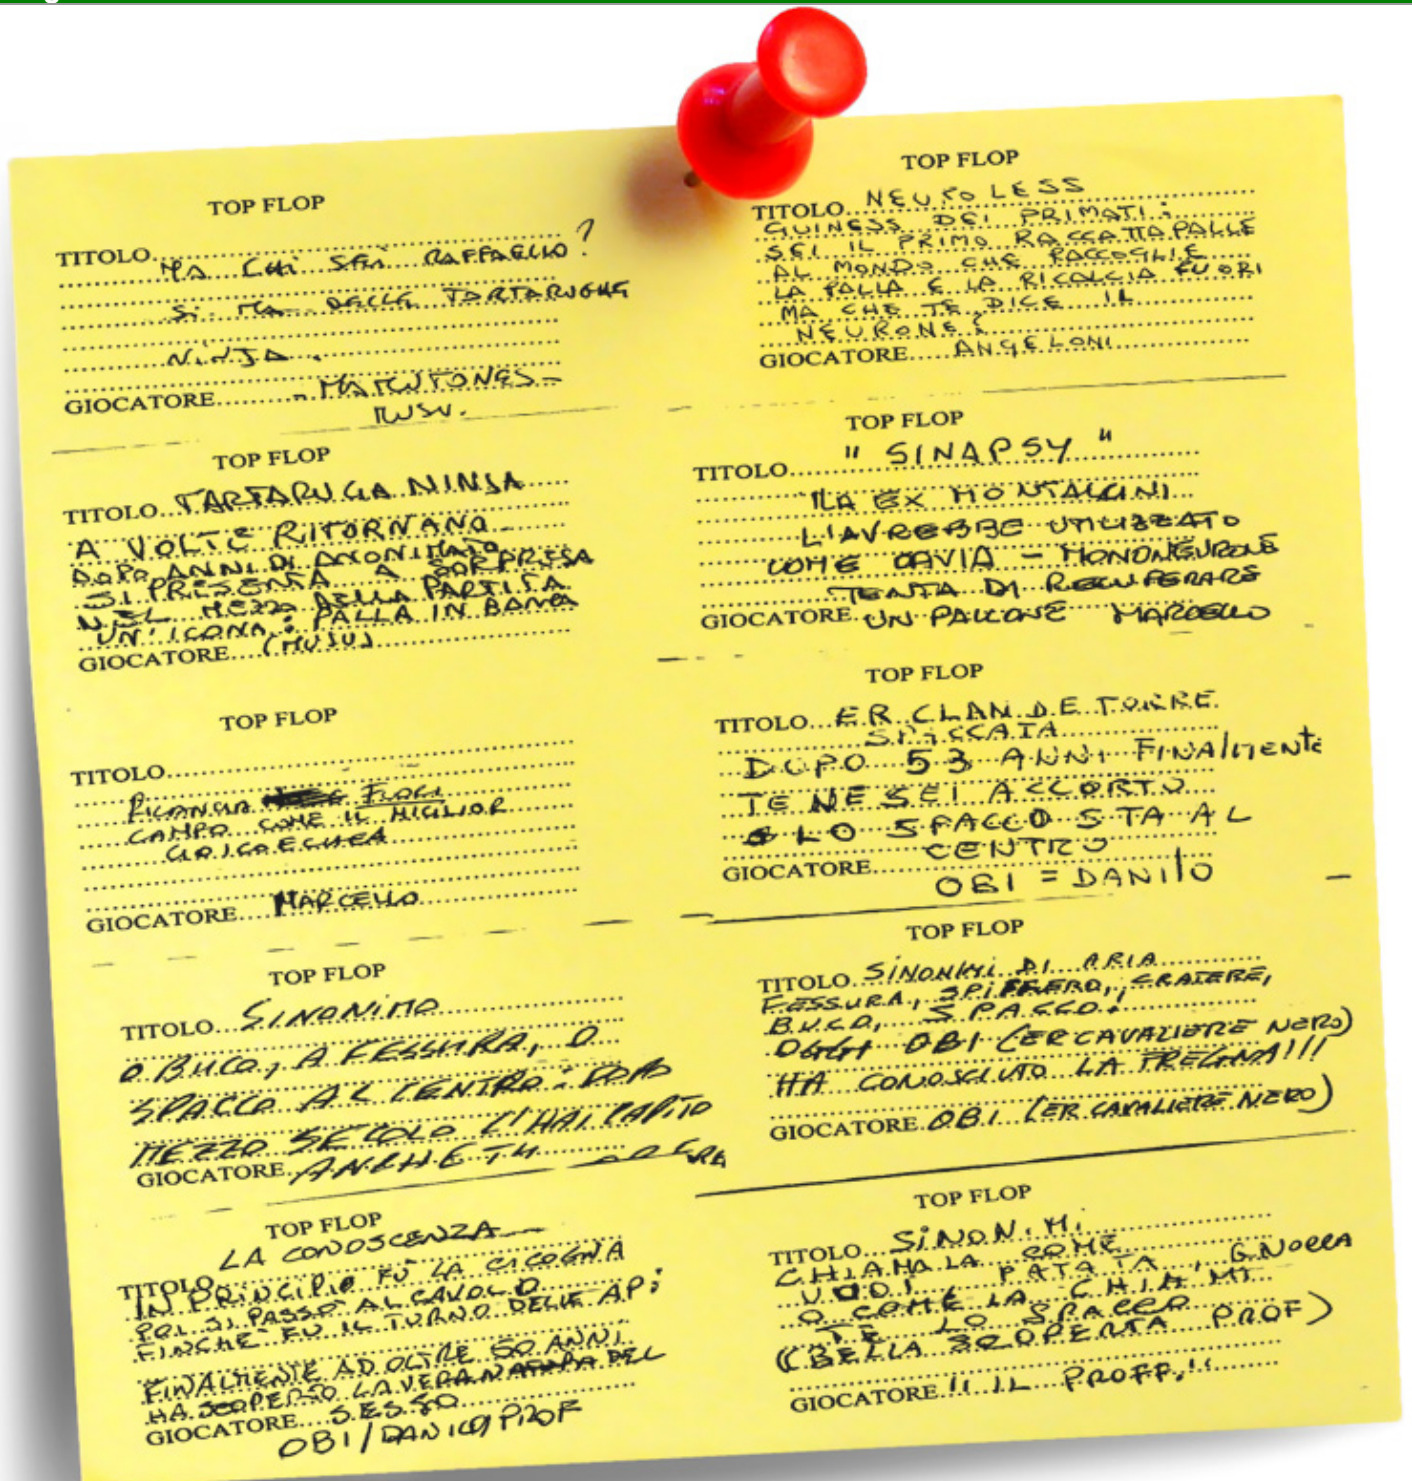 TOP FLOP
TITOLO
MA CHI SEI RAFFAELLO?
SI MA DELLE TARTARUGHE
NINJA.
GIOCATORE
MUSU.
TOP FLOP
TITOLO TARTARUGA NINJA
A VOLTE RITORNANO
DOPO ANNI DI ANONIMATO
SI PRESENTA A SORPRESA
NEL MEZZO DELLA PARTITA
UN'ICONA: PALLA IN BANCA
GIOCATORE (MUSU)
TOP FLOP
TITOLO
RILANCIA FUORI
CAMPO COME IL MIGLIOR
GIOCATORE MARCELLO
TOP FLOP
TITOLO SINONIMO
O BUCO, A FESSURA, O
SPACCO AL CENTRO: DOPO
MEZZO SECOLO L'HAI CAPITO
GIOCATORE ANCHE TU
TOP FLOP
LA CONOSCENZA
TITOLO
IN PRINCIPIO FÙ LA CICOGNA
POI SI PASSÒ AL CAVOLO
FINCHÈ FÙ IL TURNO DELLE API
FINALMENTE AD OLTRE 50 ANNI
HA SCOPERTO LA VERA NATURA DEL
GIOCATORE SESSO
OBI/DANILO/PROF
TOP FLOP
TITOLO NEURO LESS
GUINESS DEI PRIMATI:
SEI IL PRIMO RACCATTAPALLE
AL MONDO CHE RACCOGLIE
LA PALLA E LA RICALCIA FUORI
MA CHE TE DICE IL
NEURONE?
GIOCATORE ANGELONI
TOP FLOP
TITOLO "SINAPSY"
LA EX MONTALCINI
L'AVREBBE UTILIZZATO
COME CAVIA - MONONEURONE
TENTA DI RECUPERARE
GIOCATORE UN PALLONE MARCELLO
TOP FLOP
TITOLO ER CLAN DE TORRE
SPACCATA
DOPO 53 ANNI FINALMENTE
TE NE SEI ACCORTO
LO SPACCO STA AL
CENTRO
GIOCATORE
OBI = DANILO
TOP FLOP
TITOLO SINONIMI DI ARIA
FESSURA, SPIFFERO, CRATERE,
BUCO, SPACCO:
OGGI OBI (ER CAVALIERE NERO)
HA CONOSCIUTO LA FREGNA!!!
GIOCATORE OBI (ER CAVALIERE NERO)
TOP FLOP
TITOLO SINONIMI
CHIAMALA COME
VUOI, PATATA, GNOCCA
O COME LA CHIAMI
TE LO SPACCO
(BELLA SCOPERTA PROF)
GIOCATORE "IL PROFF."